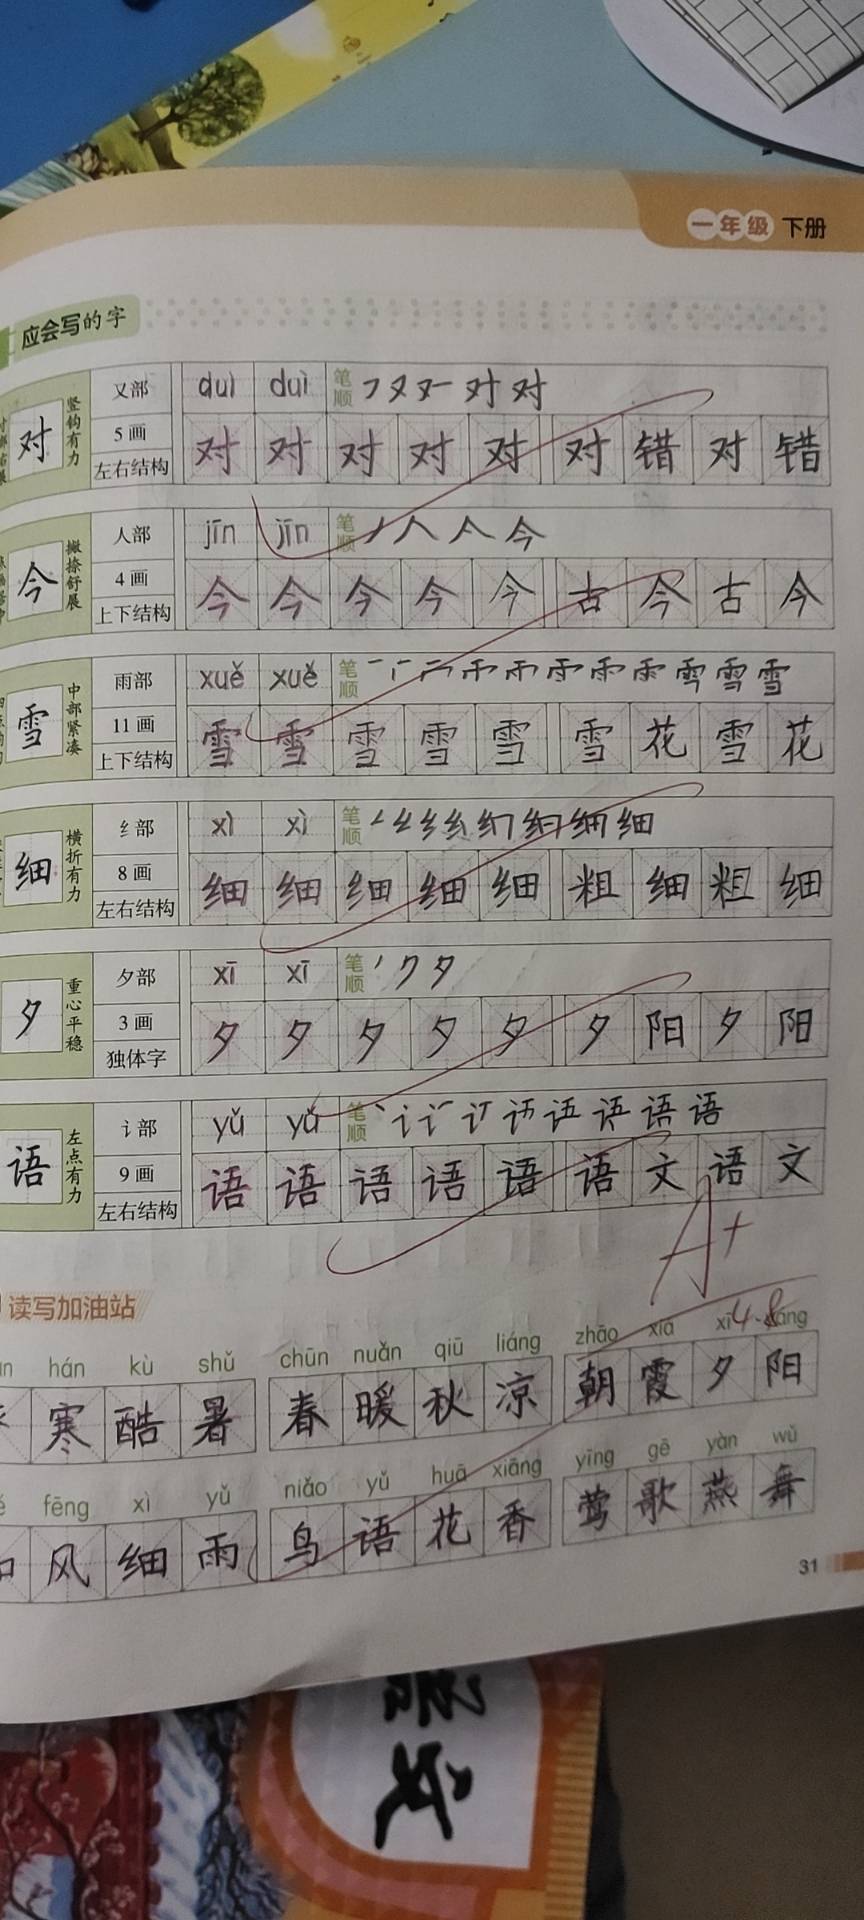 一年级 下册
应会写的字
对 竖钩有力 又部 duì duì 笔顺 フ 又 对 对
5画 对 对 对 对 对 对 错 对 错
左右结构
今 撇捺舒展 人部 jīn jīn 笔顺 丿 人 亽 今
4画 今 今 今 今 今 古 今 古 今
上下结构
雪 中部紧凑 雨部 xuě xuě 笔顺 雪 雪
11画 雪 雪 雪 雪 雪 雪 花 雪 花
上下结构
细 横折有力 纟部 xì xì 笔顺 细
8画 细 细 细 细 细 粗 细 粗 细
左右结构
夕 重心平稳 夕部 xī xī 笔顺 丿 ク 夕
3画 夕 夕 夕 夕 夕 夕 阳 夕 阳
独体字
语 左点有力 讠部 yǔ yǔ 笔顺 丶 讠 语 语
9画 语 语 语 语 语 语 文 语 文
左右结构
A+
4.8
读写加油站
hán kù shǔ chūn nuǎn qiū liáng zhāo xiá xī yáng
寒 酷 暑 春 暖 秋 凉 朝 霞 夕 阳
fēng xì yǔ niǎo yǔ huā xiāng yīng gē yàn wǔ
风 细 雨 鸟 语 花 香 莺 歌 燕 舞
31
语文